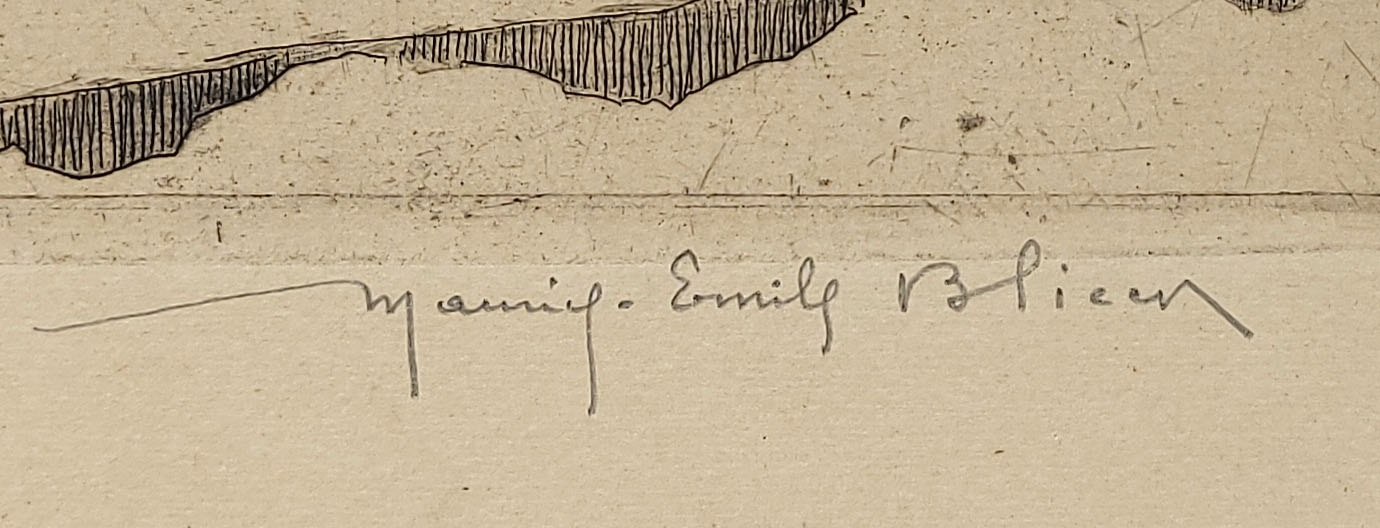 Maurice-Emile Blieck